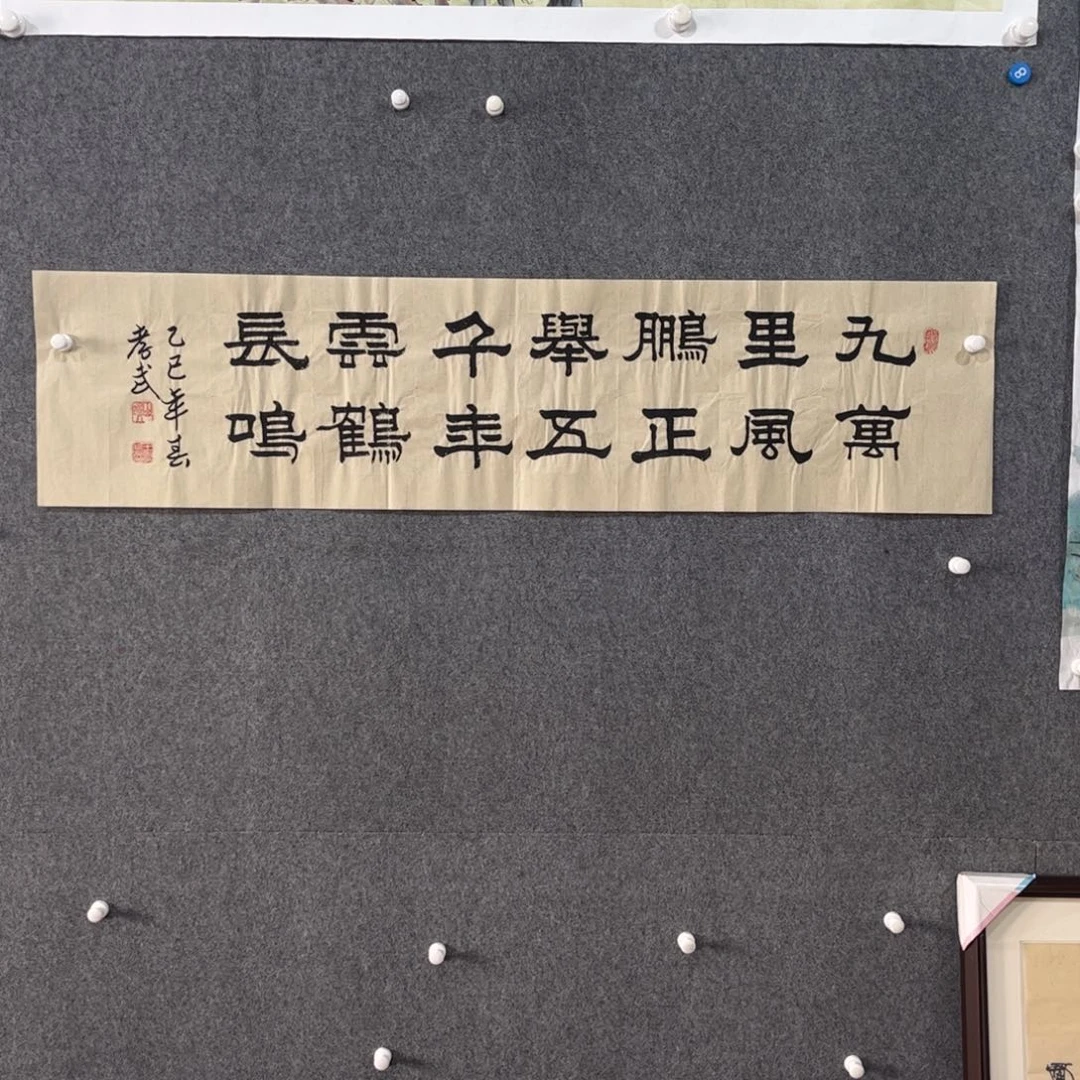 九萬
里風
鵬正
舉五
千年
雲鶴
長鳴
乙巳年春
孝武
8